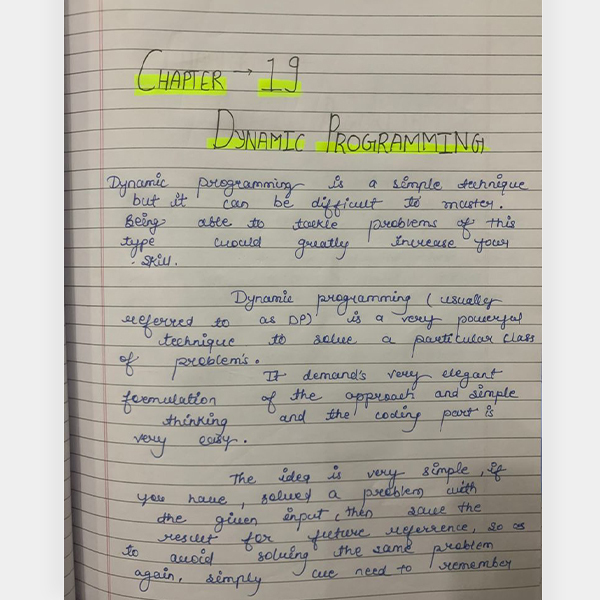 CHAPTER → 19
DYNAMIC PROGRAMMING
Dynamic programming is a simple technique
but it can be difficult to master.
Being able to tackle problems of this
type would greatly increase your
skill.
Dynamic programming (usually
referred to as DP) is a very powerful
technique to solve a particular class
of problem's.
It demand's very elegant
formulation of the approach and simple
thinking and the coding part is
very easy.
The idea is very simple, if
you have, solved a problem with
the given input, then save the
result for future reference, so as
to avoid solving the same problem
again, simply we need to remember